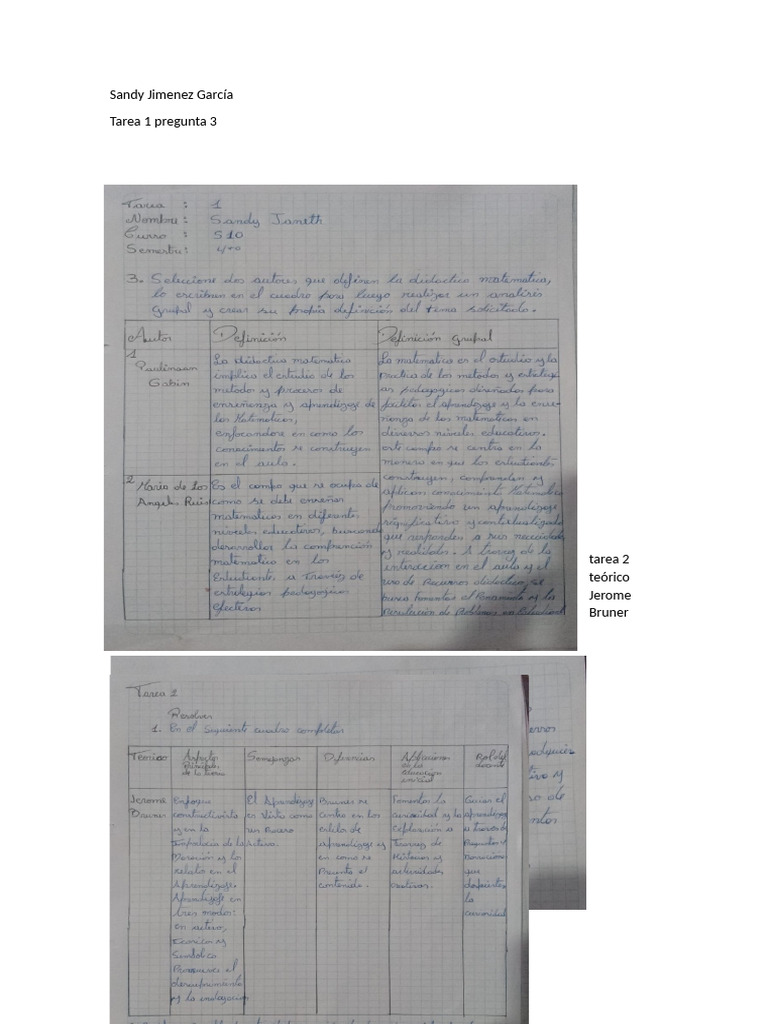 Sandy Jimenez García
Tarea 1 pregunta 3
Tarea : 1
Nombre : Sandy Janeth
Curso : S10
Semestre:
3. Seleccione dos autores que definen la didactica matematica,
lo escriben en el cuadro para luego realizar un analisis
Grupal y crear su propia definición del tema solicitado.
Autor
Definición
Definición grupal
1
Gabin
La didáctica matematica
implica el estudio de los
metodos y procesos de
enseñanza y aprendizaje de
las Matematicas,
enfocandose en como los
conocimientos se construyen
en el aula.
La matematica es el estudio y la
Practica de los metodos y estrategi
as pedagogicas diseñadas para
facilitar el aprendizaje y la ense
ñanza de las matematicas en
diversos niveles educativos.
este campo se centra en la
manera en que los estudiantes
construyen, comprenden y
aplican conocimientos Matematicos
promoviendo un aprendizaje
significativo y contextualizado
que responden a sus necesidades
y realidades. A traves de la
interaccion en el aula y el
uso de Recursos didacticos, se
busca Fomentar el Pensamiento y la
Resolución de Problemas en
2 Maria de los
Angeles Ruis
Es el campo que se ocupa de
como se debe enseñar
matematicas en diferentes
niveles educativos, buscando
desarrollar la comprension
matematica en los
Estudiantes, a Traves de
estrategias pedagogicas
Efectivas
tarea 2
teórico
Jerome
Bruner
Tarea 2
Resolver
1. En el Siguiente cuadro completar
Teorico
Aspectos
Principales
de la teoria
Semejanzas
Diferencias
Aplicaciones
en la
educacion
inicial
Rol del
docente
Jerome
Bruner
Enfoque
constructivista
y en la
Importancia de la
y los
relatos en el
Aprendizaje.
Aprendizaje en
tres modos:
en activo,
Iconico y
Simbolico
Promueve el
descubrimiento
y la indagacion
El Aprendizaje
es Visto como
un Proceso
activo.
Bruner se
centra en los
estilos de
aprendizaje y
en como se
Presenta el
contenido.
Fomentar la
curiosidad y la
exploración a
Traves de
Historias y
actividades
creativas.
Guiar el
aprendizaje
a traves de
Preguntas y
narraciones
que
despierten
la
curiosidad